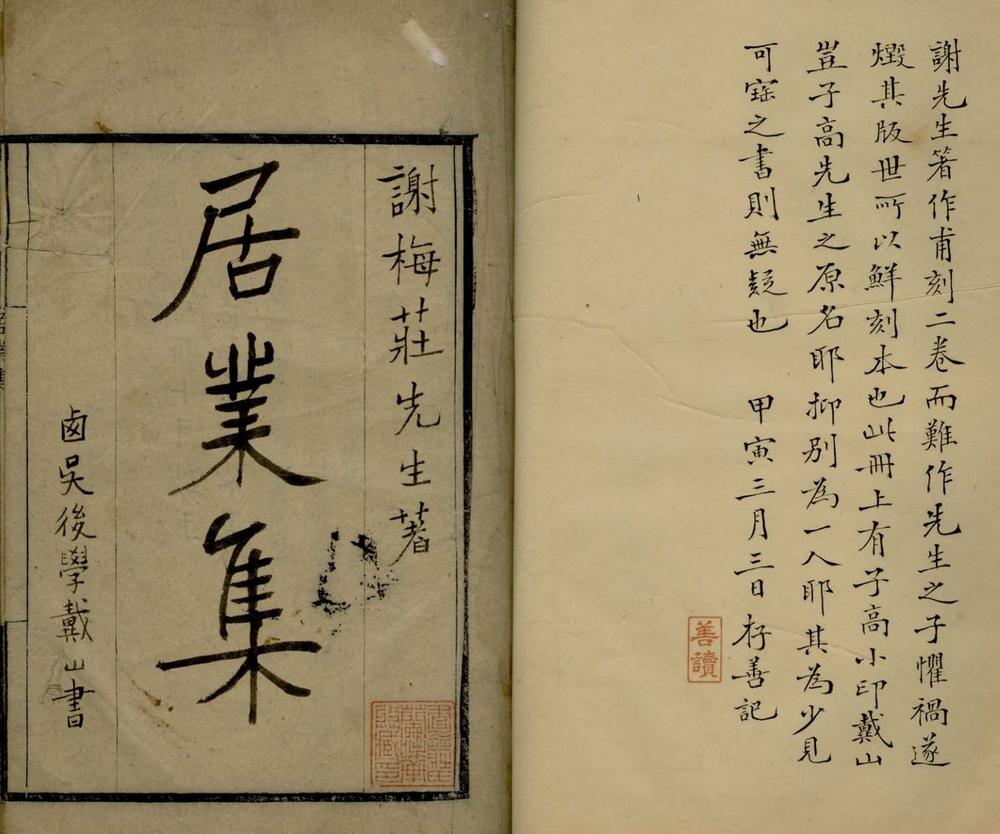 謝先生箸作甫刻二卷而難作先生之子懼禍遂
燬其版世所以鮮刻本也此冊上有子高小印戴山
豈子高先生之原名耶抑別為一人耶其為少見
可寶之書則無疑也　甲寅三月三日存善記
善讀
謝梅莊先生著
居業集
鹵吳後學戴山書